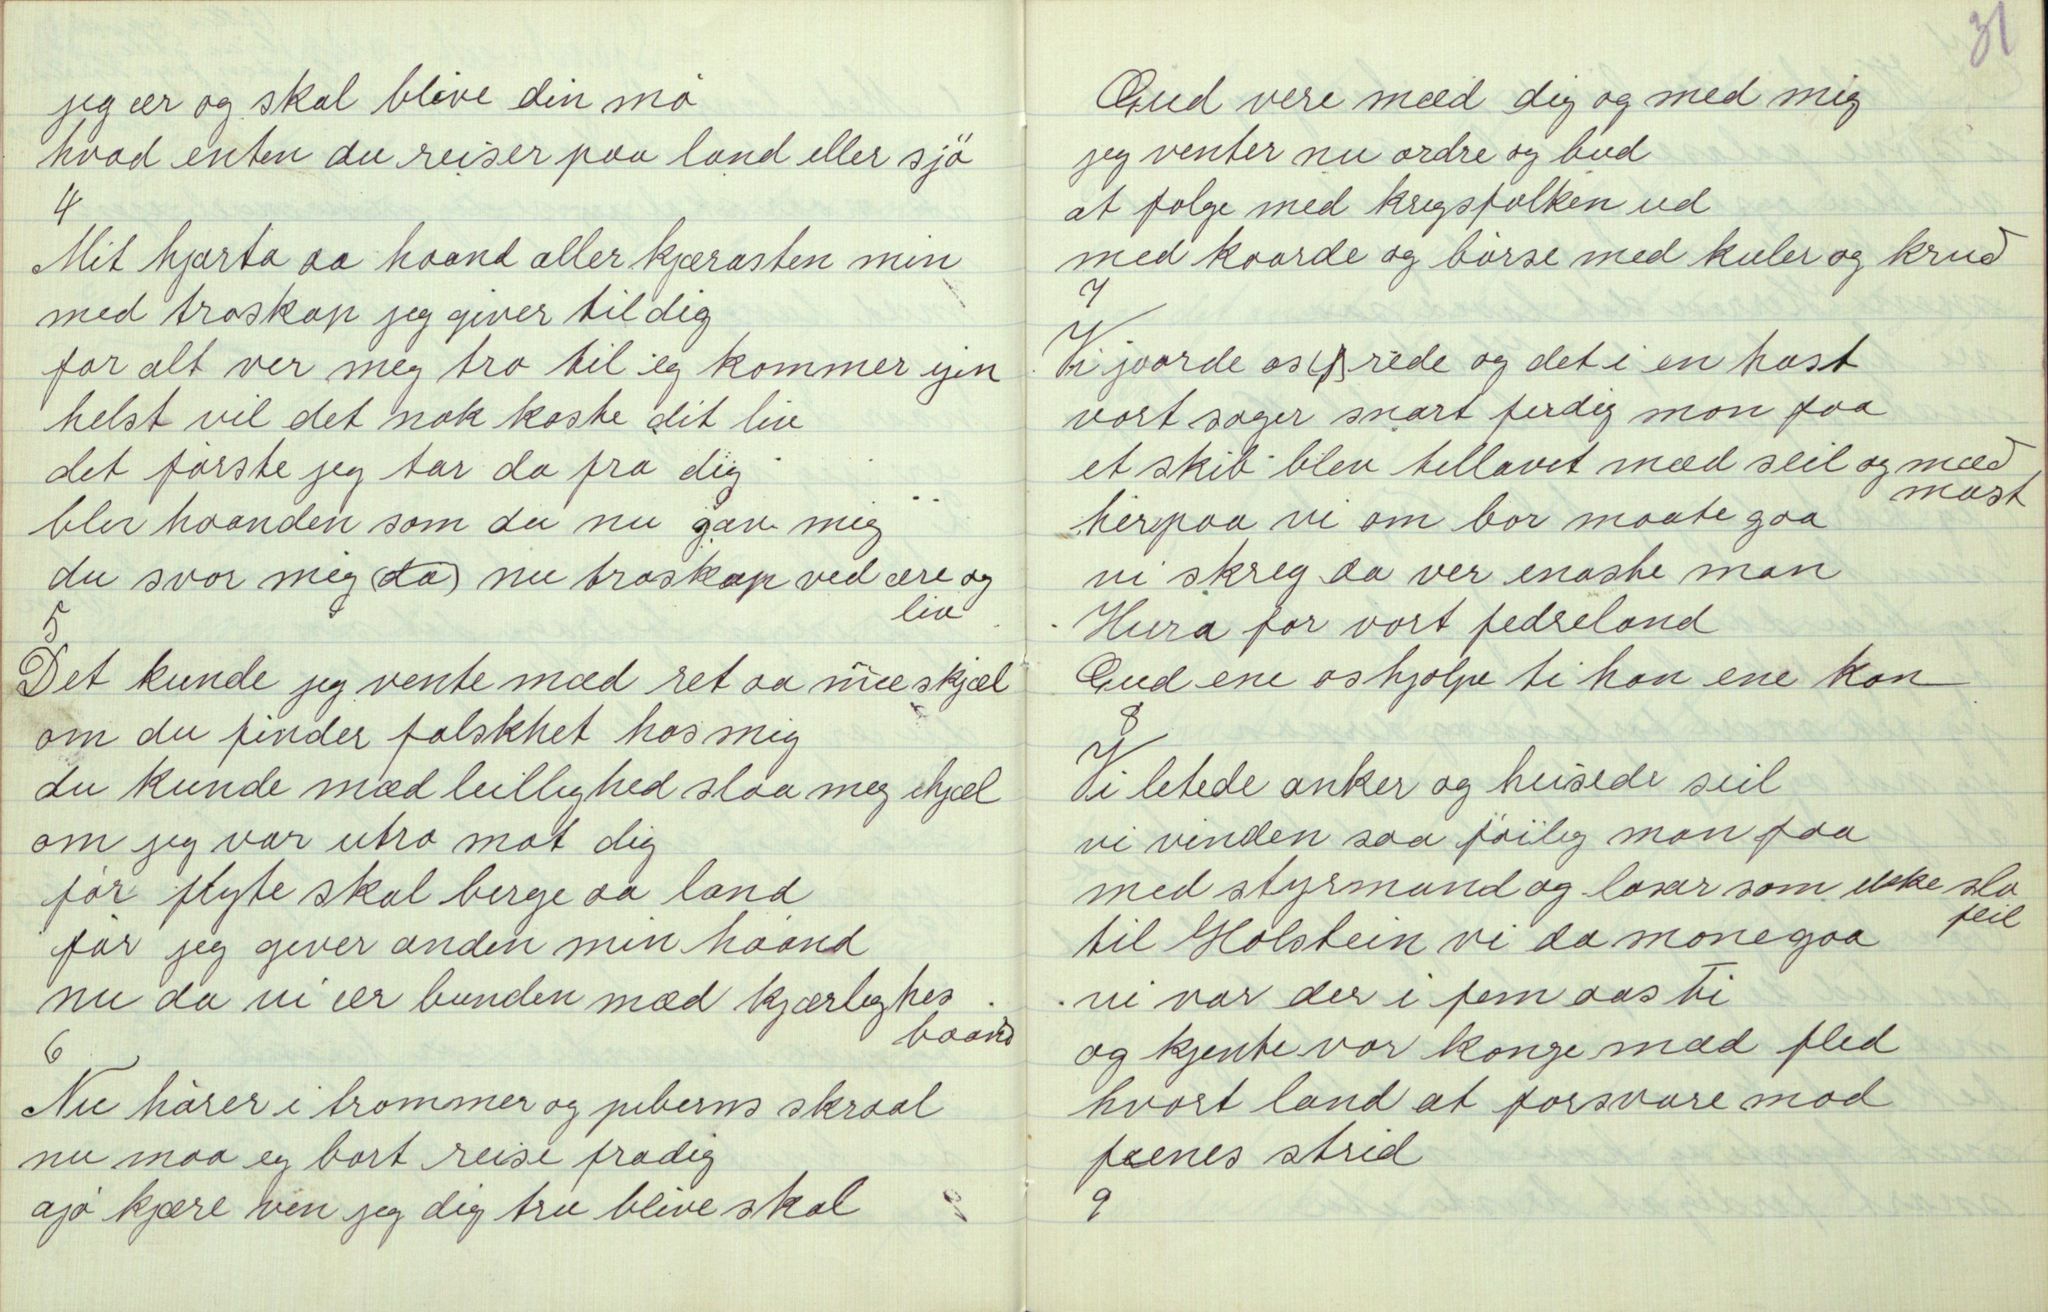 jeg ær og skal blive din mø
hvad enten du reiser paa land eller sjö
4
Mit hjærta aa haand aller kjærasten min
med troskap jeg giver til dig
for alt ver meg tro til eg kommer ijen
helst vil det nok koste dit liv
det første jeg tar da fra dig
bler haanden som du nu gav mig
du svor mig (da) nu troskap ved ære og
liv
5
Det kunde jeg vente mæd ret aa mæ skjæl
om du finder falskhet hos mig
du kunde mæd leillighed slaa meg ihjæl
om jeg var utro mot dig
før flyte skal berge aa land
før jeg giver anden min haand
nu da vi ær bunden mæd kjærlighes
baand
6
Nu hører i trommer og piberns skraal
nu maa eg bort reise fra dig
ajø kjære ven jeg dig tru blive skal
31
Gud vere mæd dig og med mig
jeg venter nu ordre og bud
at følge med kregsfolken ud
med kaarde og børse med kuler og krud
7
Vi jvorde os rede og det i en hast
vort sager snart ferdig mon faa
et skib blev tellavet mæd seil og mæd
mast
herpaa vi om bor maate gaa
vi skreg da ver enaste man
Hura for vort fedreland
Gud ene os hjølpe ti han ene kan
8
Vi letede anker og heisede seil
vi vinden saa føilig mon faa
med styrmand og losær som ekke sla
feil
til Holstein vi da mone gaa
vi var der i fem aas ti
og kjente vor konge mæd fled
hvort land at forsvare mod
fænes strid
9